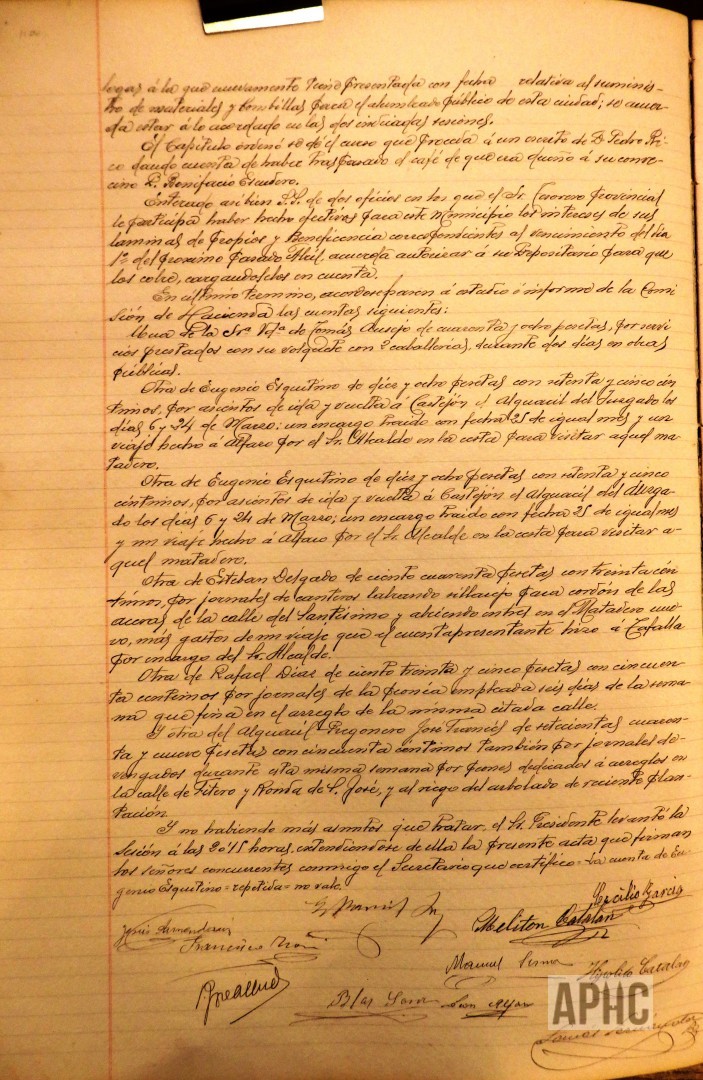 á la que nuevamente tiene presentada con fecha relativa al suminis-
tro de materiales y bombillas para el alumbrado público de esta ciudad; se acuer-
da estar á lo acordado en las dos indicadas sesiones.
El Capítulo ordenó se dé el curso que proceda á un escrito de D. Pedro Ri-
co dando cuenta de haber traspasado el café de que era dueño á su conve-
cino D. Bonifacio Escudero.
Enterado asi bien S.S. de dos oficios en los que el Sr. Tesorero Provincial
le participa haber hecho efectivos para este Municipio los intereses de sus
laminas de Propios y Beneficencia correspondientes al vencimiento del dia
1º del proximo pasado Abril, acuerda autorizar á su Depositario para que
los cobre, cargandoseles en cuenta.
En ultimo termino, acordose pasen á estudio é informe de la Comi-
sión de Hacienda las cuentas siguientes:
Una de la Sra. Vda. de Tomás Ausejo de cuarenta y ocho pesetas, por servi-
cios prestados con su volquete con 2 caballerias, durante dos días en obras
públicas.
Otra de Eugenio Esquitino de diez y ocho pesetas con setenta y cinco cén-
timos, por asientos de ida y vuelta á Castejón el Alguacil del Juzgado los
días 6 y 24 de Marzo; un encargo traido con fecha 25 de igual mes y un
viaje hecho á Alfaro por el Sr. Alcalde en la cesta para visitar aquel ma-
tadero.
Otra de Eugenio Esquitino de diez y ocho pesetas con setenta y cinco
céntimos, por asientos de ida y vuelta á Castejón el alguacil del Juzga-
do los días 6 y 24 de Marzo; un encargo traido con fecha 25 de igual mes
y un viaje hecho á Alfaro por el Sr. Alcalde en la cesta para visitar a-
quel matadero.
Otra de Esteban Delgado de ciento cuarenta pesetas con treinta cén-
timos, por jornales de canteros labrando sillarejo para cordón de las
aceras de la calle del Santísimo y abriendo en el Matadero nue-
vo, más gastos de un viaje que el cuentapresentante hizo á Tafalla
por encargo del Sr. Alcalde.
Otra de Rafael Dias de ciento treinta y cinco pesetas con cincuen-
ta centimos por jornales de la peonia empleada seis días de la sema-
na que fina en el arreglo de la misma citada calle.
Y otra del Alguacil-Pregonero José Francés de setecientas cuaren-
ta y nueve pesetas con cincuenta centimos tambien por jornales de-
vengados durante esta misma semana por peones dedicados á arreglos en
la calle de Fitero y Ronda de S. José, y al riego del arbolado de reciente plan-
tación.
Y no habiendo más asuntos que tratar, el Sr. Presidente levantó la
sesión á las 20'15 horas, extendiendose de ella la presente acta que firman
los señores concurrentes conmigo el Secretario que certifico=La cuenta de Eu-
genio Esquitino=repetida=no vale.
Cecilio Garcia
Meliton Catalán
Jesús Armendariz
Francisco
Manuel
Hipolito Catalán
Blas
Leon Ayon
Tomas
APHC